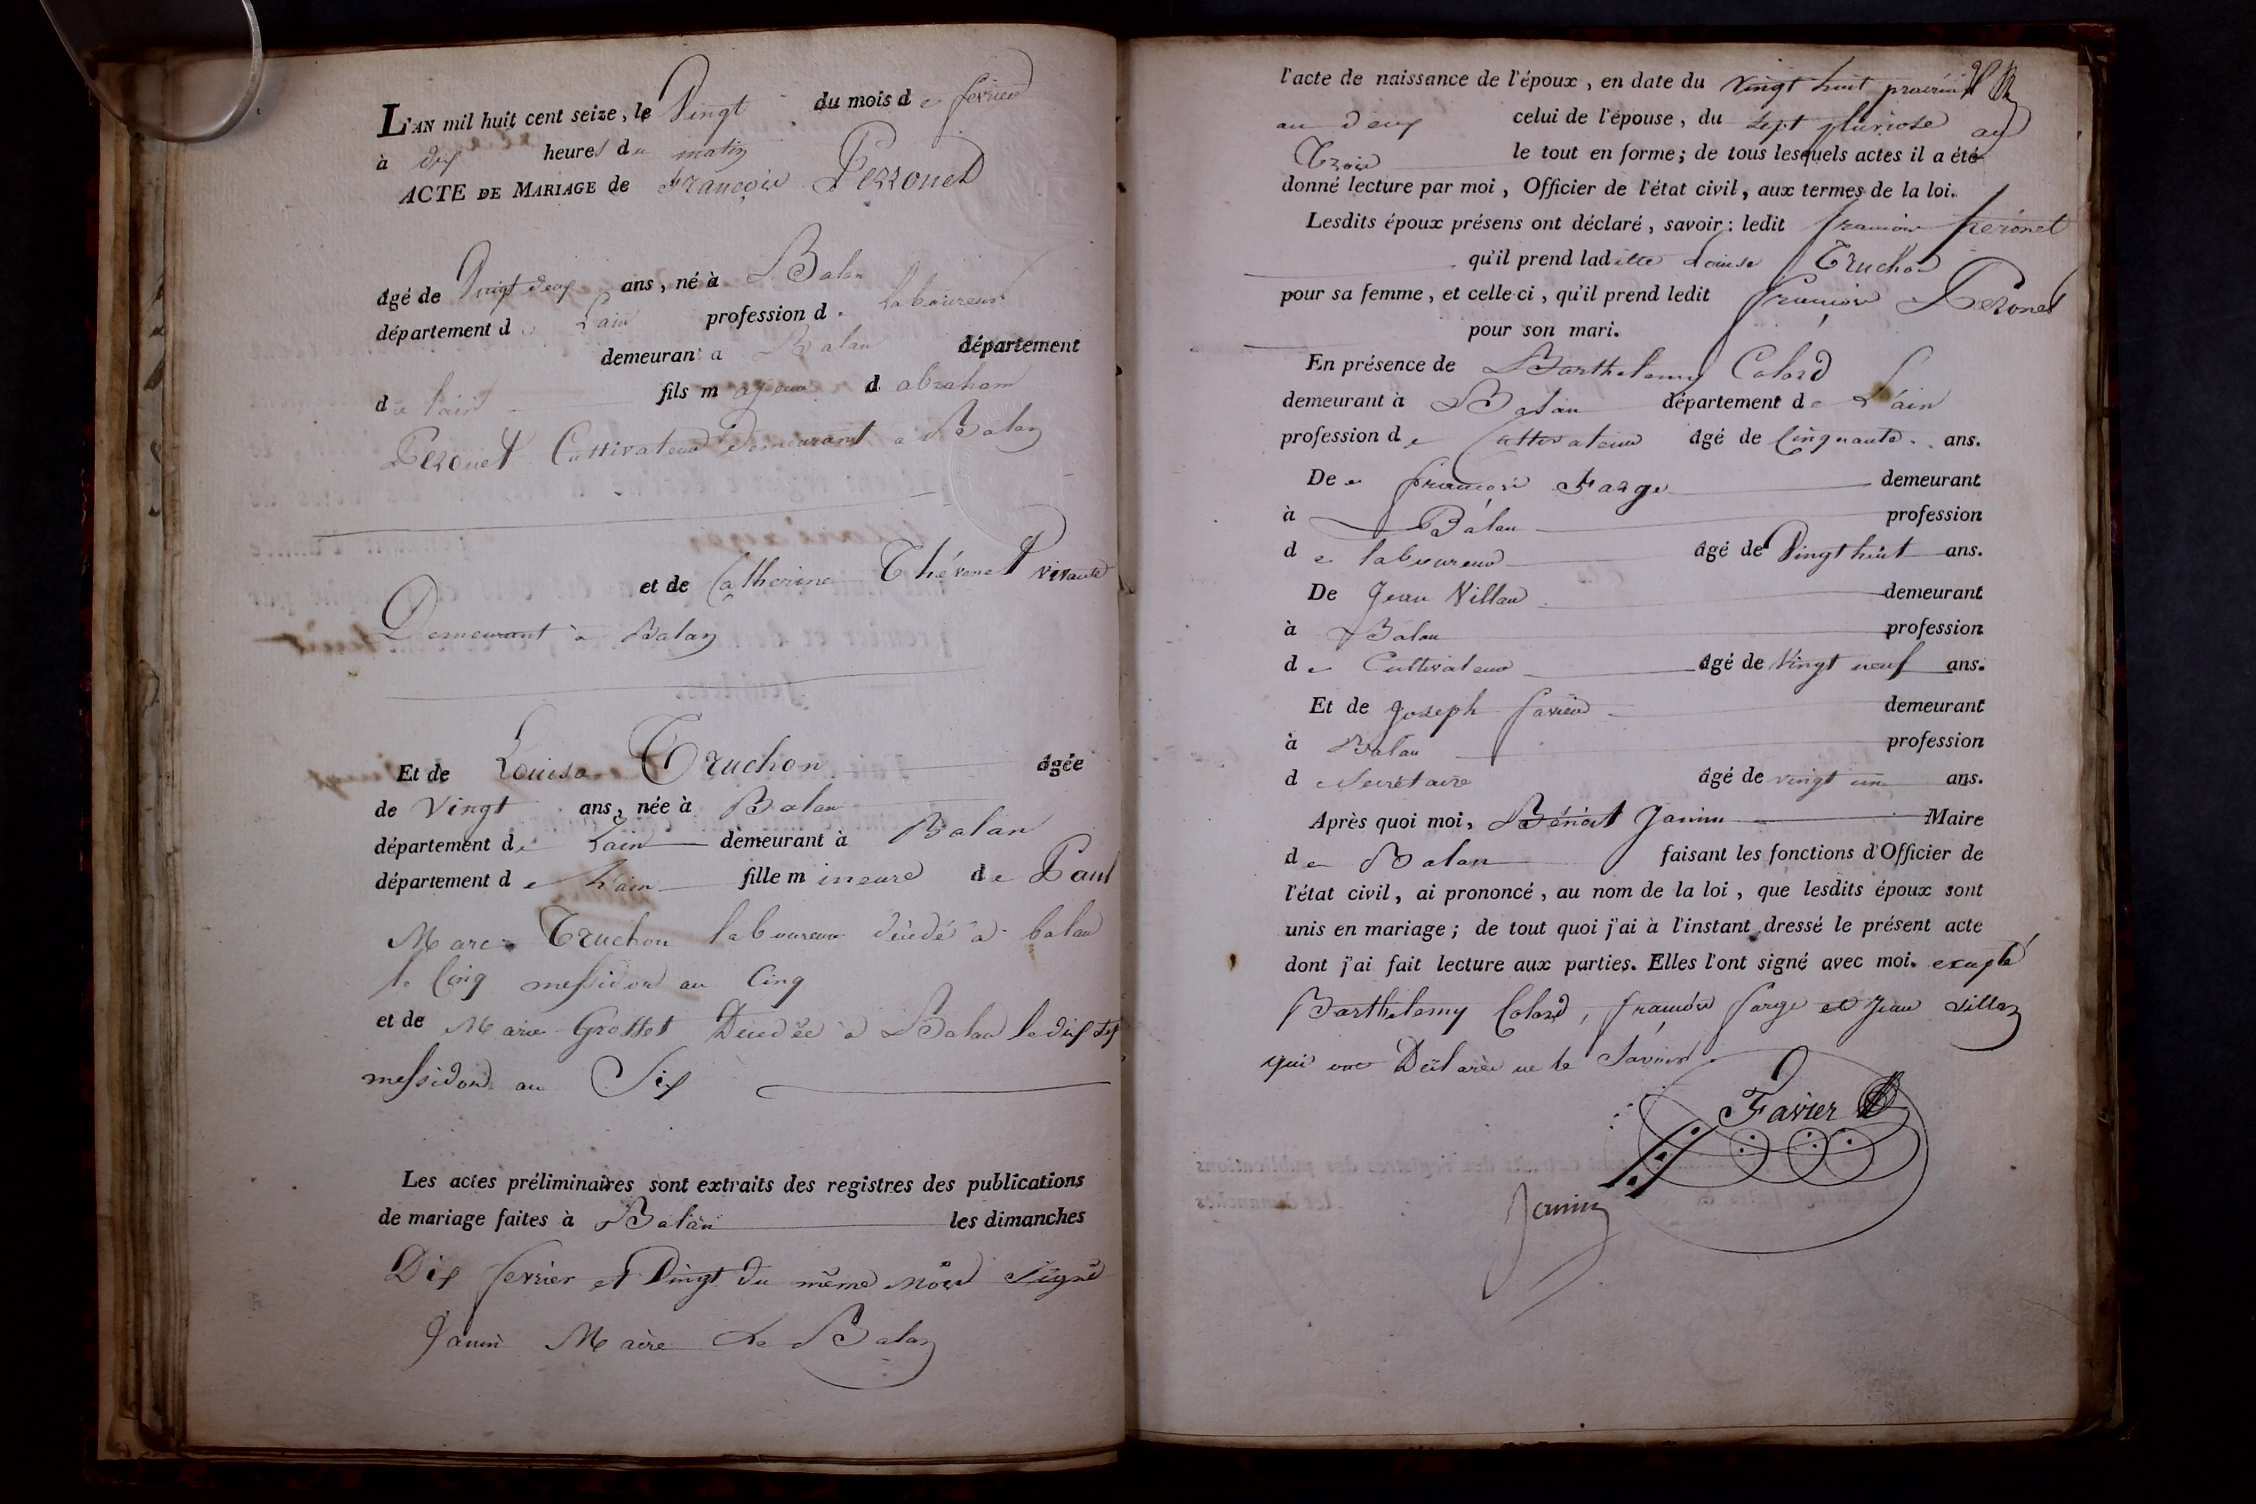 L'AN mil huit cent seize, le Vingt du mois de fevrier
à dix heures du matin
ACTE DE MARIAGE de François Perronet
âgé de Vingt deux ans, né à Balan
département de Lain profession de laboureur
demeurant a Balan département
de lain fils majeur d abraham
Peronet Cultivateur demeurant a Balan
et de Catherine Thévenet vivante
Demeurant à Balan
Et de Louise Truchon âgée
de Vingt ans, née à Balan
département de Lain demeurant à Balan
département de Lain fille mineure de Paul
Marc Truchon laboureur décédé à balan
le Cinq messidor an Cinq
et de Marie Grosset Décédée à Balan le dix sept
messidor an Six
Les actes préliminaires sont extraits des registres des publications
de mariage faites à Balan les dimanches
Dix fevrier et Vingt du même mois Signé
Janin Maire de Balan
l'acte de naissance de l'époux, en date du vingt huit prairial
an deux celui de l'épouse, du sept pluviose an
Trois le tout en forme; de tous lesquels actes il a été
donné lecture par moi, Officier de l'état civil, aux termes de la loi.
Lesdits époux présens ont déclaré, savoir: ledit francois peronet
qu'il prend laditte Louise Truchon
pour sa femme, et celle-ci, qu'il prend ledit francois Peronet
pour son mari.
En présence de Barthelemy Colard
demeurant à Balan département de L'ain
profession de Cultivateur âgé de Cinquante ans.
De francois Farge demeurant
à Balan profession
de laboureur âgé de Vingt huit ans.
De Jean Villan demeurant
à Balan profession
de Cultivateur âgé de Vingt neuf ans.
Et de Joseph favier demeurant
à Balan profession
de Secrétaire âgé de vingt un ans.
Après quoi moi, Bénoit Janin Maire
de Balan faisant les fonctions d'Officier de
l'état civil, ai prononcé, au nom de la loi, que lesdits époux sont
unis en mariage; de tout quoi j'ai à l'instant dressé le présent acte
dont j'ai fait lecture aux parties. Elles l'ont signé avec moi. excepté
Barthelemy Colard, francois farge et Jean villan
qui ont Déclarés ne le Savoir
Favier
Janin